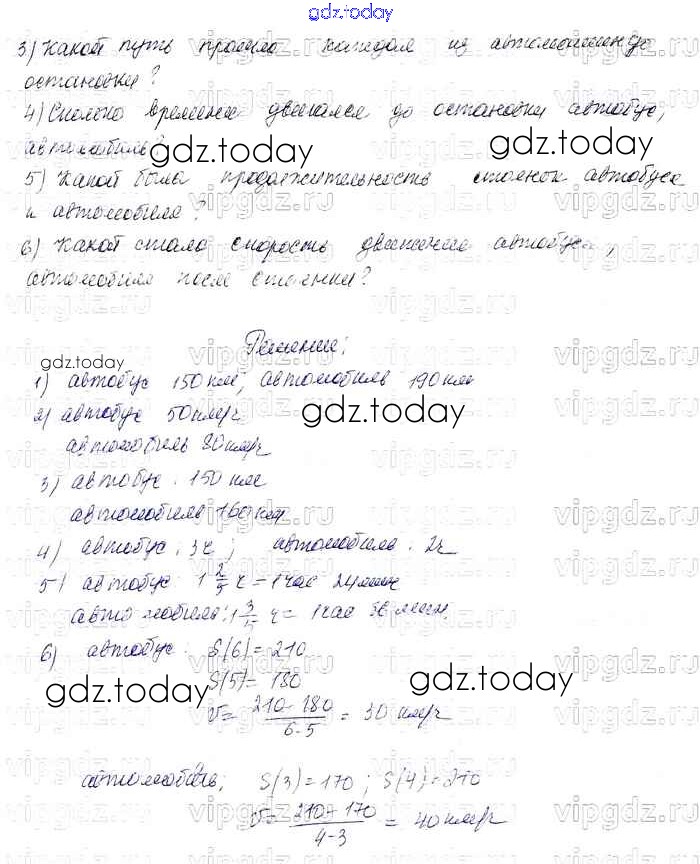 gdz.today
3) Какой путь прошло каждая из автомашин до
остановки?
4) Сколько времени двигался до остановки автобус,
автомобиль?
gdz.today
5) Какой была продолжительность стоянок автобуса
и автомобиля?
6) Какой стала скорость движения автобуса,
автомобиля после стоянки?
Решение:
gdz.today
1) автобус 150 км, автомобиль 190 км
2) автобус 50 км/ч
gdz.today
автомобиль 80 км/ч
3) автобус: 150 км
автомобиль 160 км
4) автобус: 3ч; автомобиль: 2ч
5) автобус: 1 2/5 ч = 1 час 24 мин
автомобиль: 1 3/5 ч = 1 час 36 мин.
6) автобус: S(6)=210
S(5)=180
gdz.today
gdz.today
V= 210-180 / 6-5 = 30 км/ч
автомобиль: S(3)=170; S(4)=210
V= 210-170 / 4-3 = 40 км/ч
vipgdz.ru